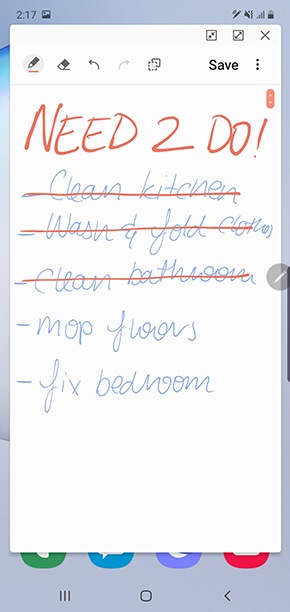 2:17
Save
NEED 2 DO!
- Clean kitchen
- Wash & fold clothes
- clean bathroom
- mop floors
- fix bedroom